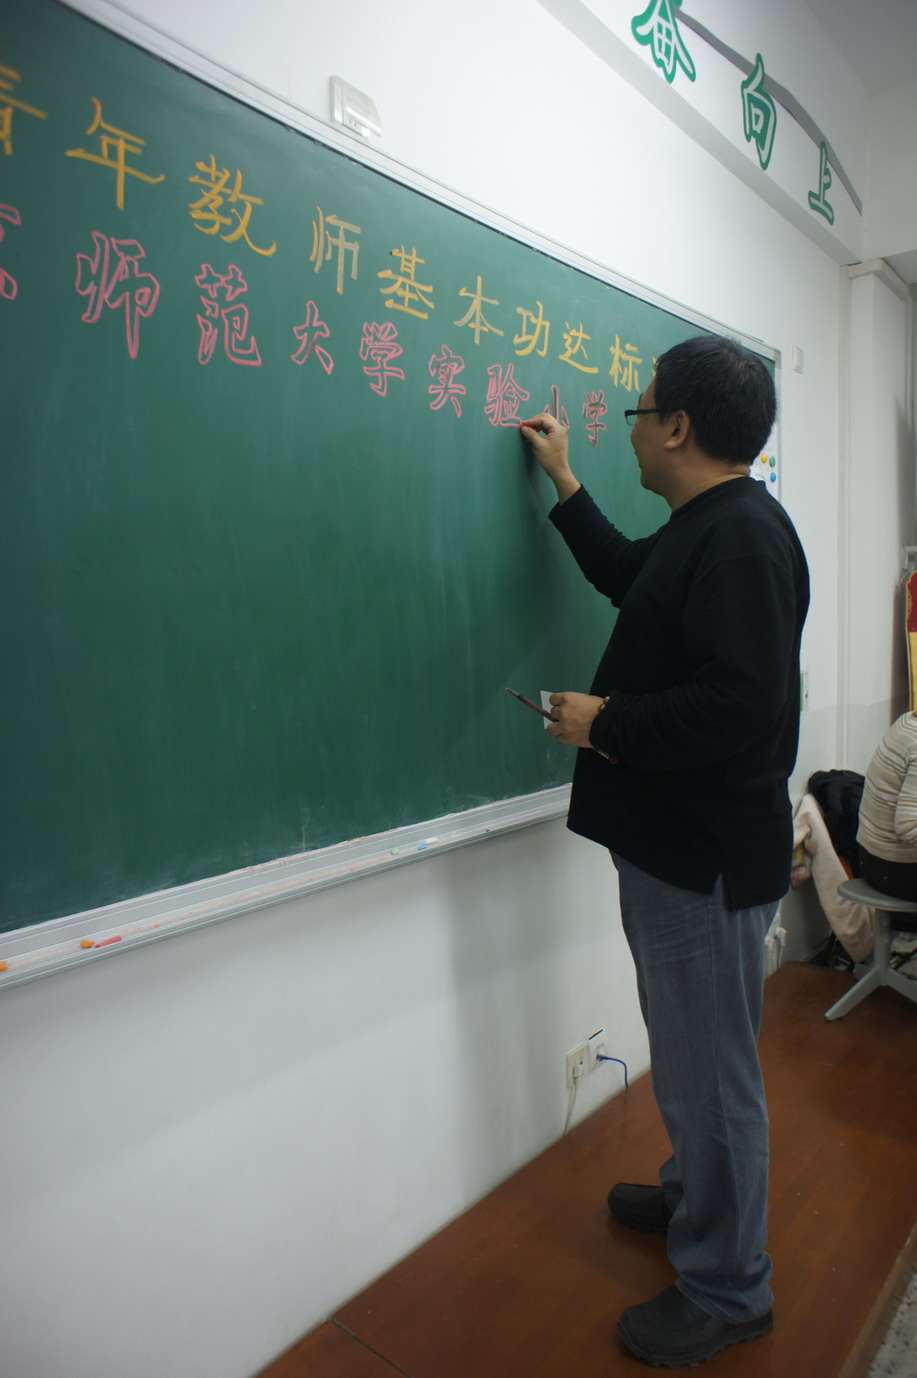 奋向上
青年教师基本功达标
京师范大学实验小学